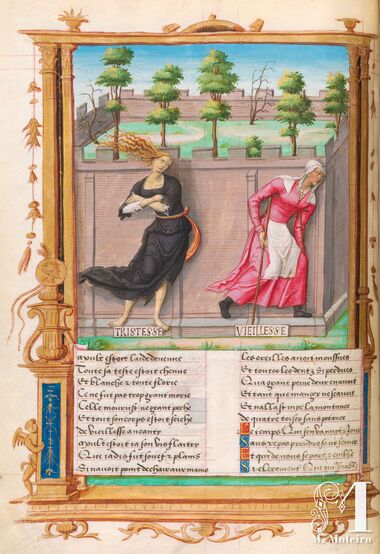 TRISTESSE
VIEILLESSE
Moult estoit laide devenue
Toute sa teste estoit chenue
Et blanche et toute florie
Ce ne fut pas trop grant morie
Celle mourust ne grant peche
Et tout son corps estoit seche
De vieillesse
Moult estoit ia son viz flaitry
Qui iadis fut souef et plains
Si navoit point de chair aux mains
Les oreilles avoit moussues
Et toutes les dentz si perdues
Qua grant peine deux en avoit
Et tant que manger ne scavoit
Et nallast la montance
De quatre toises sans potance
Le temps qui sen va nuit et jour
Sans repos prendre et sans sejour
Et qui de nous se part et emble
Si celeement quil nous semble
M
M. Moleiro